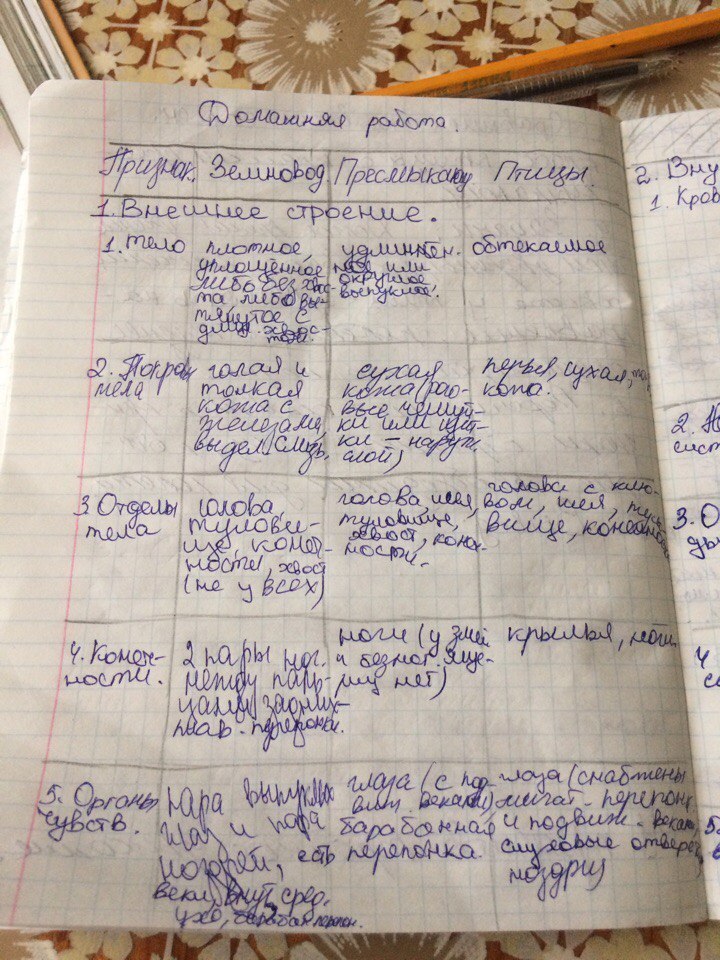 Домашняя работа.
Признак. Земновод. Пресмыкающ. Птицы.
1. Внешнее строение.
1. тело
плотное,
уплощённое
либо без хвос-
та либо вы-
тянутое с
длин. хвос-
том.
удлинён.
или
округлое
выпуклое.
обтекаемое
2. Покров
тела
голая и
тонкая
кожа с
железами,
выдел. слизь.
сухая
кожа (рого-
вые чешуй-
ки или щит-
ки – наружн.
слой)
перья, сухая,
кожа.
3 Отделы
тела
голова,
тулови-
ще, конеч-
ности, хвост
(не у всех)
голова, шея,
туловище,
хвост, конеч-
ности.
голова с клю-
вом, шея, туло-
вище, конечности
4. Конеч-
ности.
2 пары ног.
между паль-
цами задних
лап - перепонки.
ноги (у змей
и безног. яще-
риц нет)
крылья, ноги
5. Органы
чувств.
пара выпуклых
глаз и пара
ноздрей, есть
веки, внут., сред.
ухо, барабан. перепон.
глаза (с под-
веками),
барабанная
перепонка.
глаза (снабжены
мигат. перепонк.
и подвиж. веками,
слуховые отверст.,
ноздри)
2. Вну
1. Кров
2. Н
сист
3. О
ды
4
5